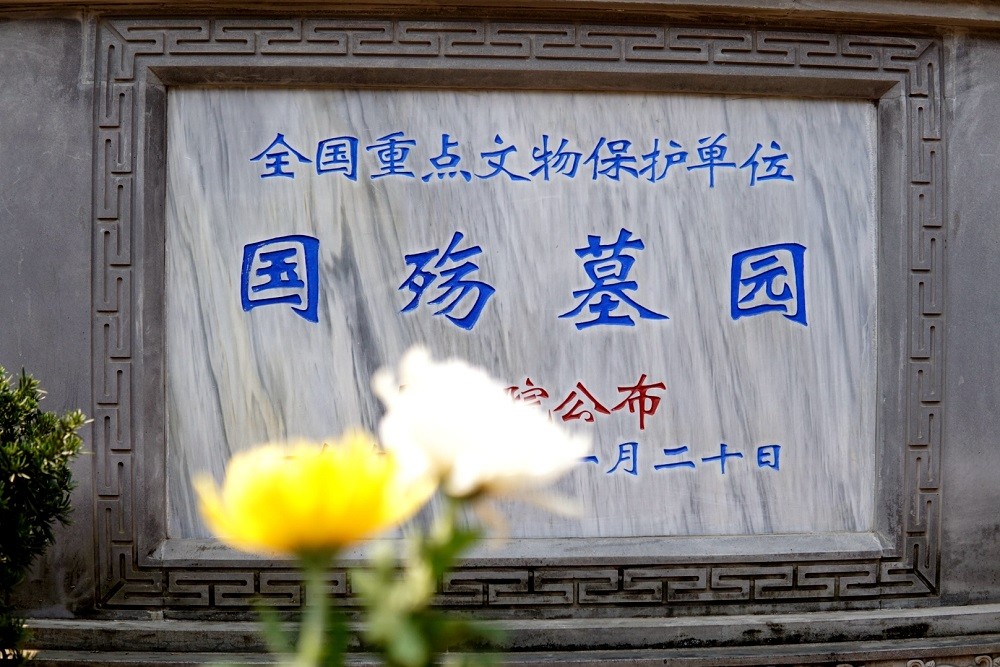 全国重点文物保护单位
国殇墓园
院公布
一月二十日